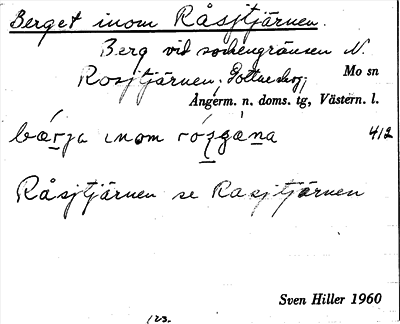 Berget inom Råsjtjärnen.
Berg vid sockengränsen N.
Rosjtjärnen; Mo sn
Ångerm. n. doms. tg, Västern. l.
bárja inom rósgána 412
Råsjtjärnen se Rasjtjärnen
Sven Hiller 1960
123.